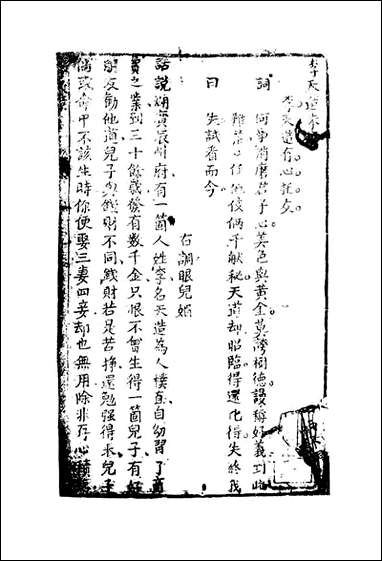 李天造
李天造有心托友
詞 何事消磨君子心美色與黃金莫誇桐德謾稱好義到此
難禁任他伎倆千般秘天道却昭臨得還化得失終我
曰 失試看而今
右調眼兒媚
話說湖廣辰州府有一箇人姓李名天造為人樸直自幼習了商
賈之業到三十餘歲發有数千金只恨不曾生得一箇兒子有好
朋友勸他道兒子與錢財不同錢財若是苦掙還勉強得來兒子
倘或命中不該生時你便娶三妻四妾却也無用除非存心積